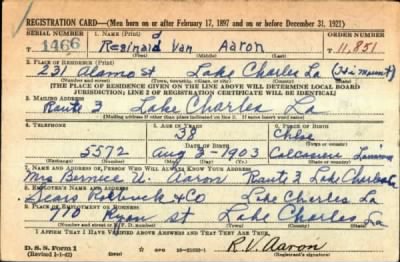 REGISTRATION CARD—(Men born on or after February 17, 1897 and on or before December 31, 1921)
SERIAL NUMBER 1. NAME (Print) ORDER NUMBER
T 1466 Reginald Van Aaron T 11,851
(First) (Middle) (Last)
2. PLACE OF RESIDENCE (Print)
231 Alamo st Lake Charles La
(Number and street) (Town, township, village, or city) (County) (State)
[THE PLACE OF RESIDENCE GIVEN ON THE LINE ABOVE WILL DETERMINE LOCAL BOARD
JURISDICTION; LINE 2 OF REGISTRATION CERTIFICATE WILL BE IDENTICAL]
3. MAILING ADDRESS
Route 3 Lake Charles La
[Mailing address if other than place indicated on line 2. If same insert word same]
4. TELEPHONE 5. AGE IN YEARS 6. PLACE OF BIRTH
38 Chloe
DATE OF BIRTH
5572 Aug 3 1903 Calcasieu
(Exchange) (Number) (Mo.) (Day) (Yr.) (State or country)
7. NAME AND ADDRESS OF PERSON WHO WILL ALWAYS KNOW YOUR ADDRESS
Mrs Bernice U. Aaron Route 3 Lake Charles La
8. EMPLOYER'S NAME AND ADDRESS
Sears Roebuck & Co Lake Charles La
9. PLACE OF EMPLOYMENT OR BUSINESS
770 Ryan St Lake Charles La
(Number and street or R. F. D. number) (Town) (County) (State)
I AFFIRM THAT I HAVE VERIFIED ABOVE ANSWERS AND THAT THEY ARE TRUE.
D. S. S. Form 1
(Revised 2-1-42)
R. V. Aaron
(Registrant's signature)